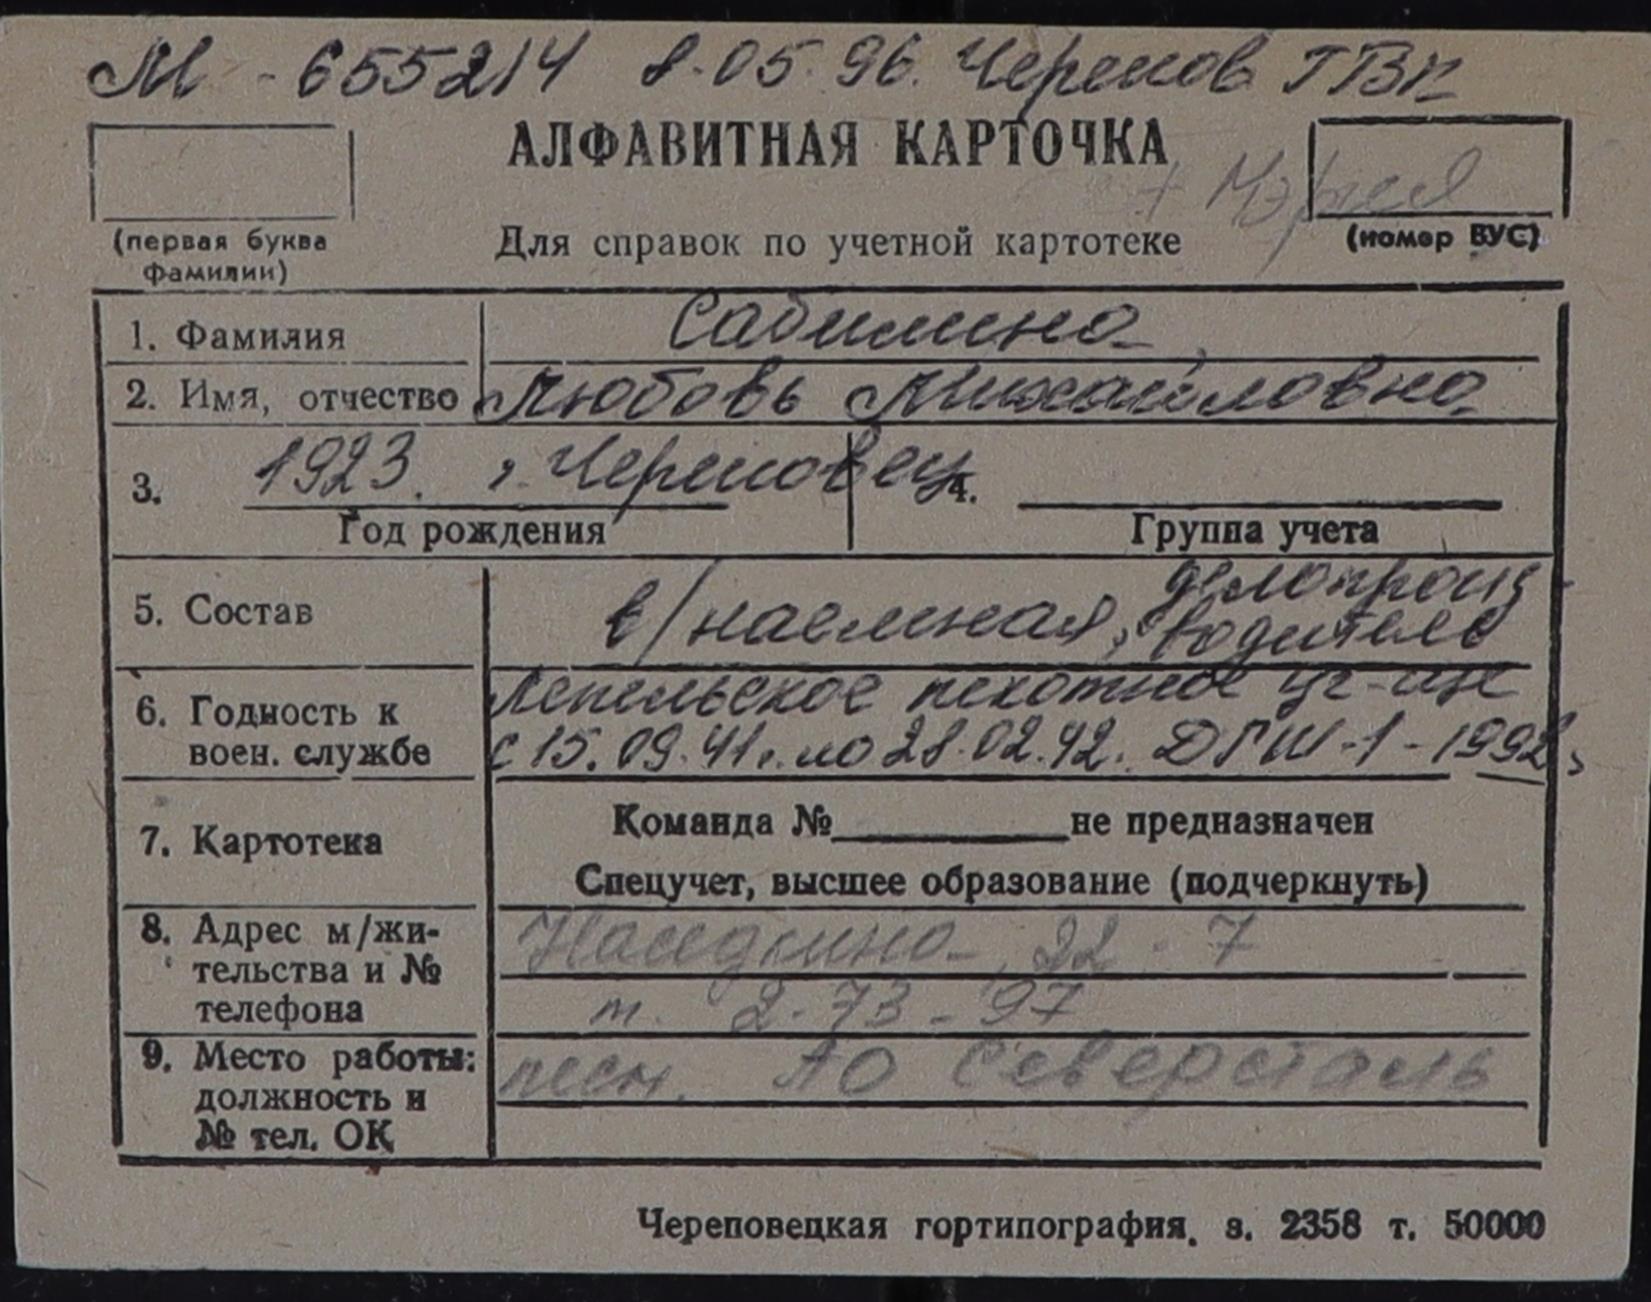 М - 655214 8.05.96. Черепов ГВК
АЛФАВИТНАЯ КАРТОЧКА
(первая буква
фамилии)
Для справок по учетной картотеке
(номер ВУС)
1. Фамилия
2. Имя, отчество Любовь Михайловна
3. 1923. г. Череповец 4.
Год рождения Группа учета
5. Состав в/наемная, делопроиз-
водитель
6. Годность к
воен. службе
Лепельское пехотное уч-ще
с 15.09.41г. по 28.02.42. ДГШ-1-1992г
7. Картотека
Команда № не предназначен
Спецучет, высшее образование (подчеркнуть)
8. Адрес м/жи-
тельства и №
телефона
22-7
т. 2-73-97
9. Место работы:
должность и
№ тел. ОК
пенс. АО Северсталь
Череповецкая гортипография. з. 2358 т. 50000